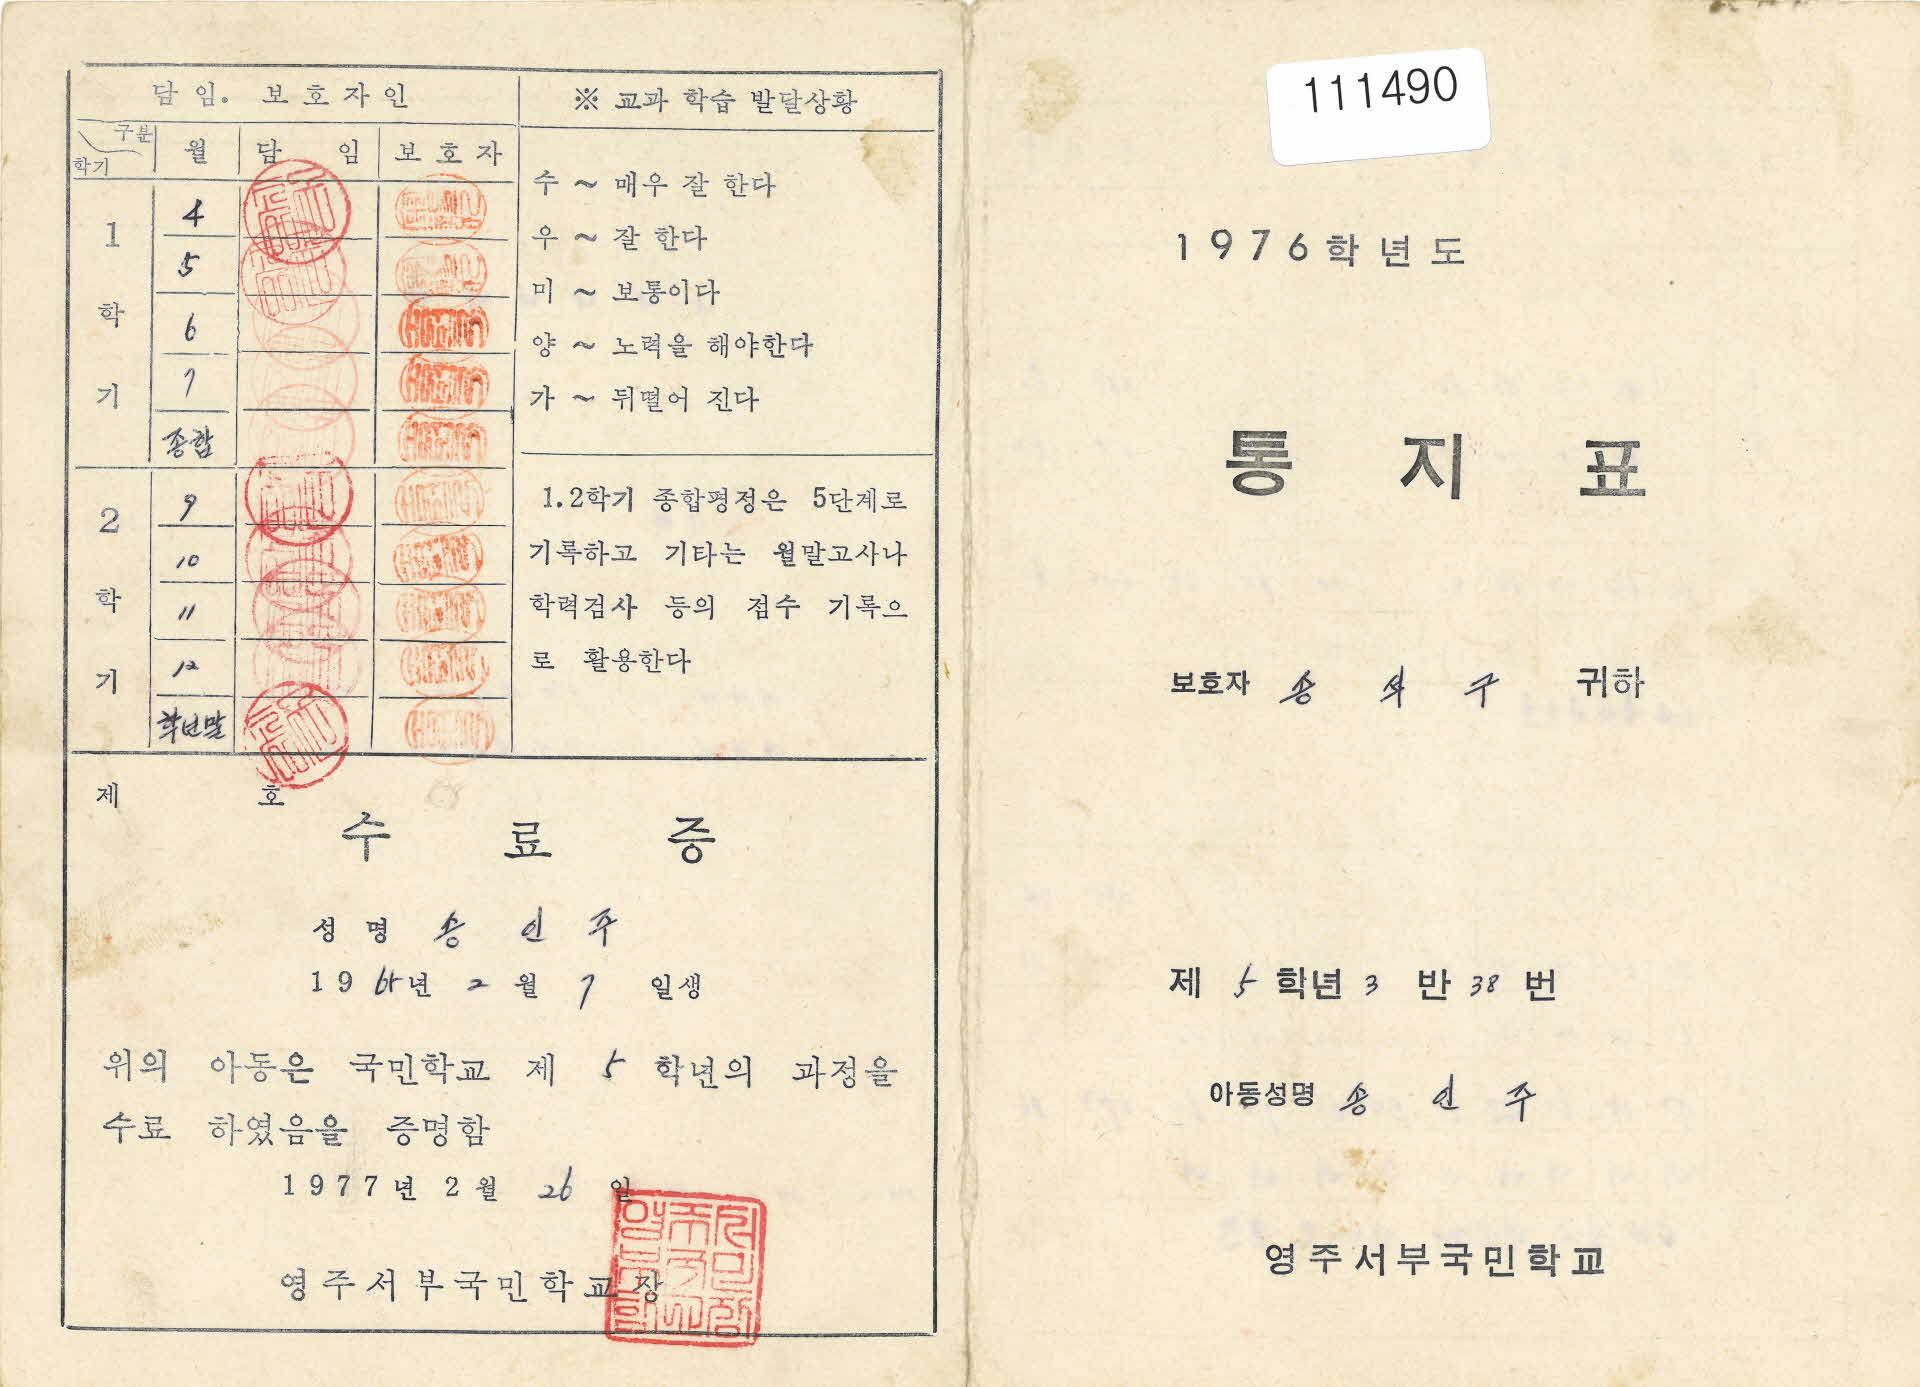 담 임. 보 호 자 인
구분
학기
월
담 임
보 호 자
1 학 기
4
5
6
7
종합
2 학 기
9
10
11
12
학년말
※ 교과 학습 발달상황
수 ~ 매우 잘 한다
우 ~ 잘 한다
미 ~ 보통이다
양 ~ 노력을 해야한다
가 ~ 뒤떨어 진다
1.2학기 종합평정은 5단계로
기록하고 기타는 월말고사나
학력검사 등의 점수 기록으
로 활용한다
제 호
수 료 증
성 명 송 인 주
19 년 2 월 7 일생
위의 아동은 국민학교 제 5 학년의 과정을
수료 하였음을 증명함
1977년 2월 26 일
영주서부국민학교장
111490
1976학년도
통 지 표
보호자 송 석 구 귀하
제 5 학년 3 반 38 번
아동성명 송 인 주
영주서부국민학교